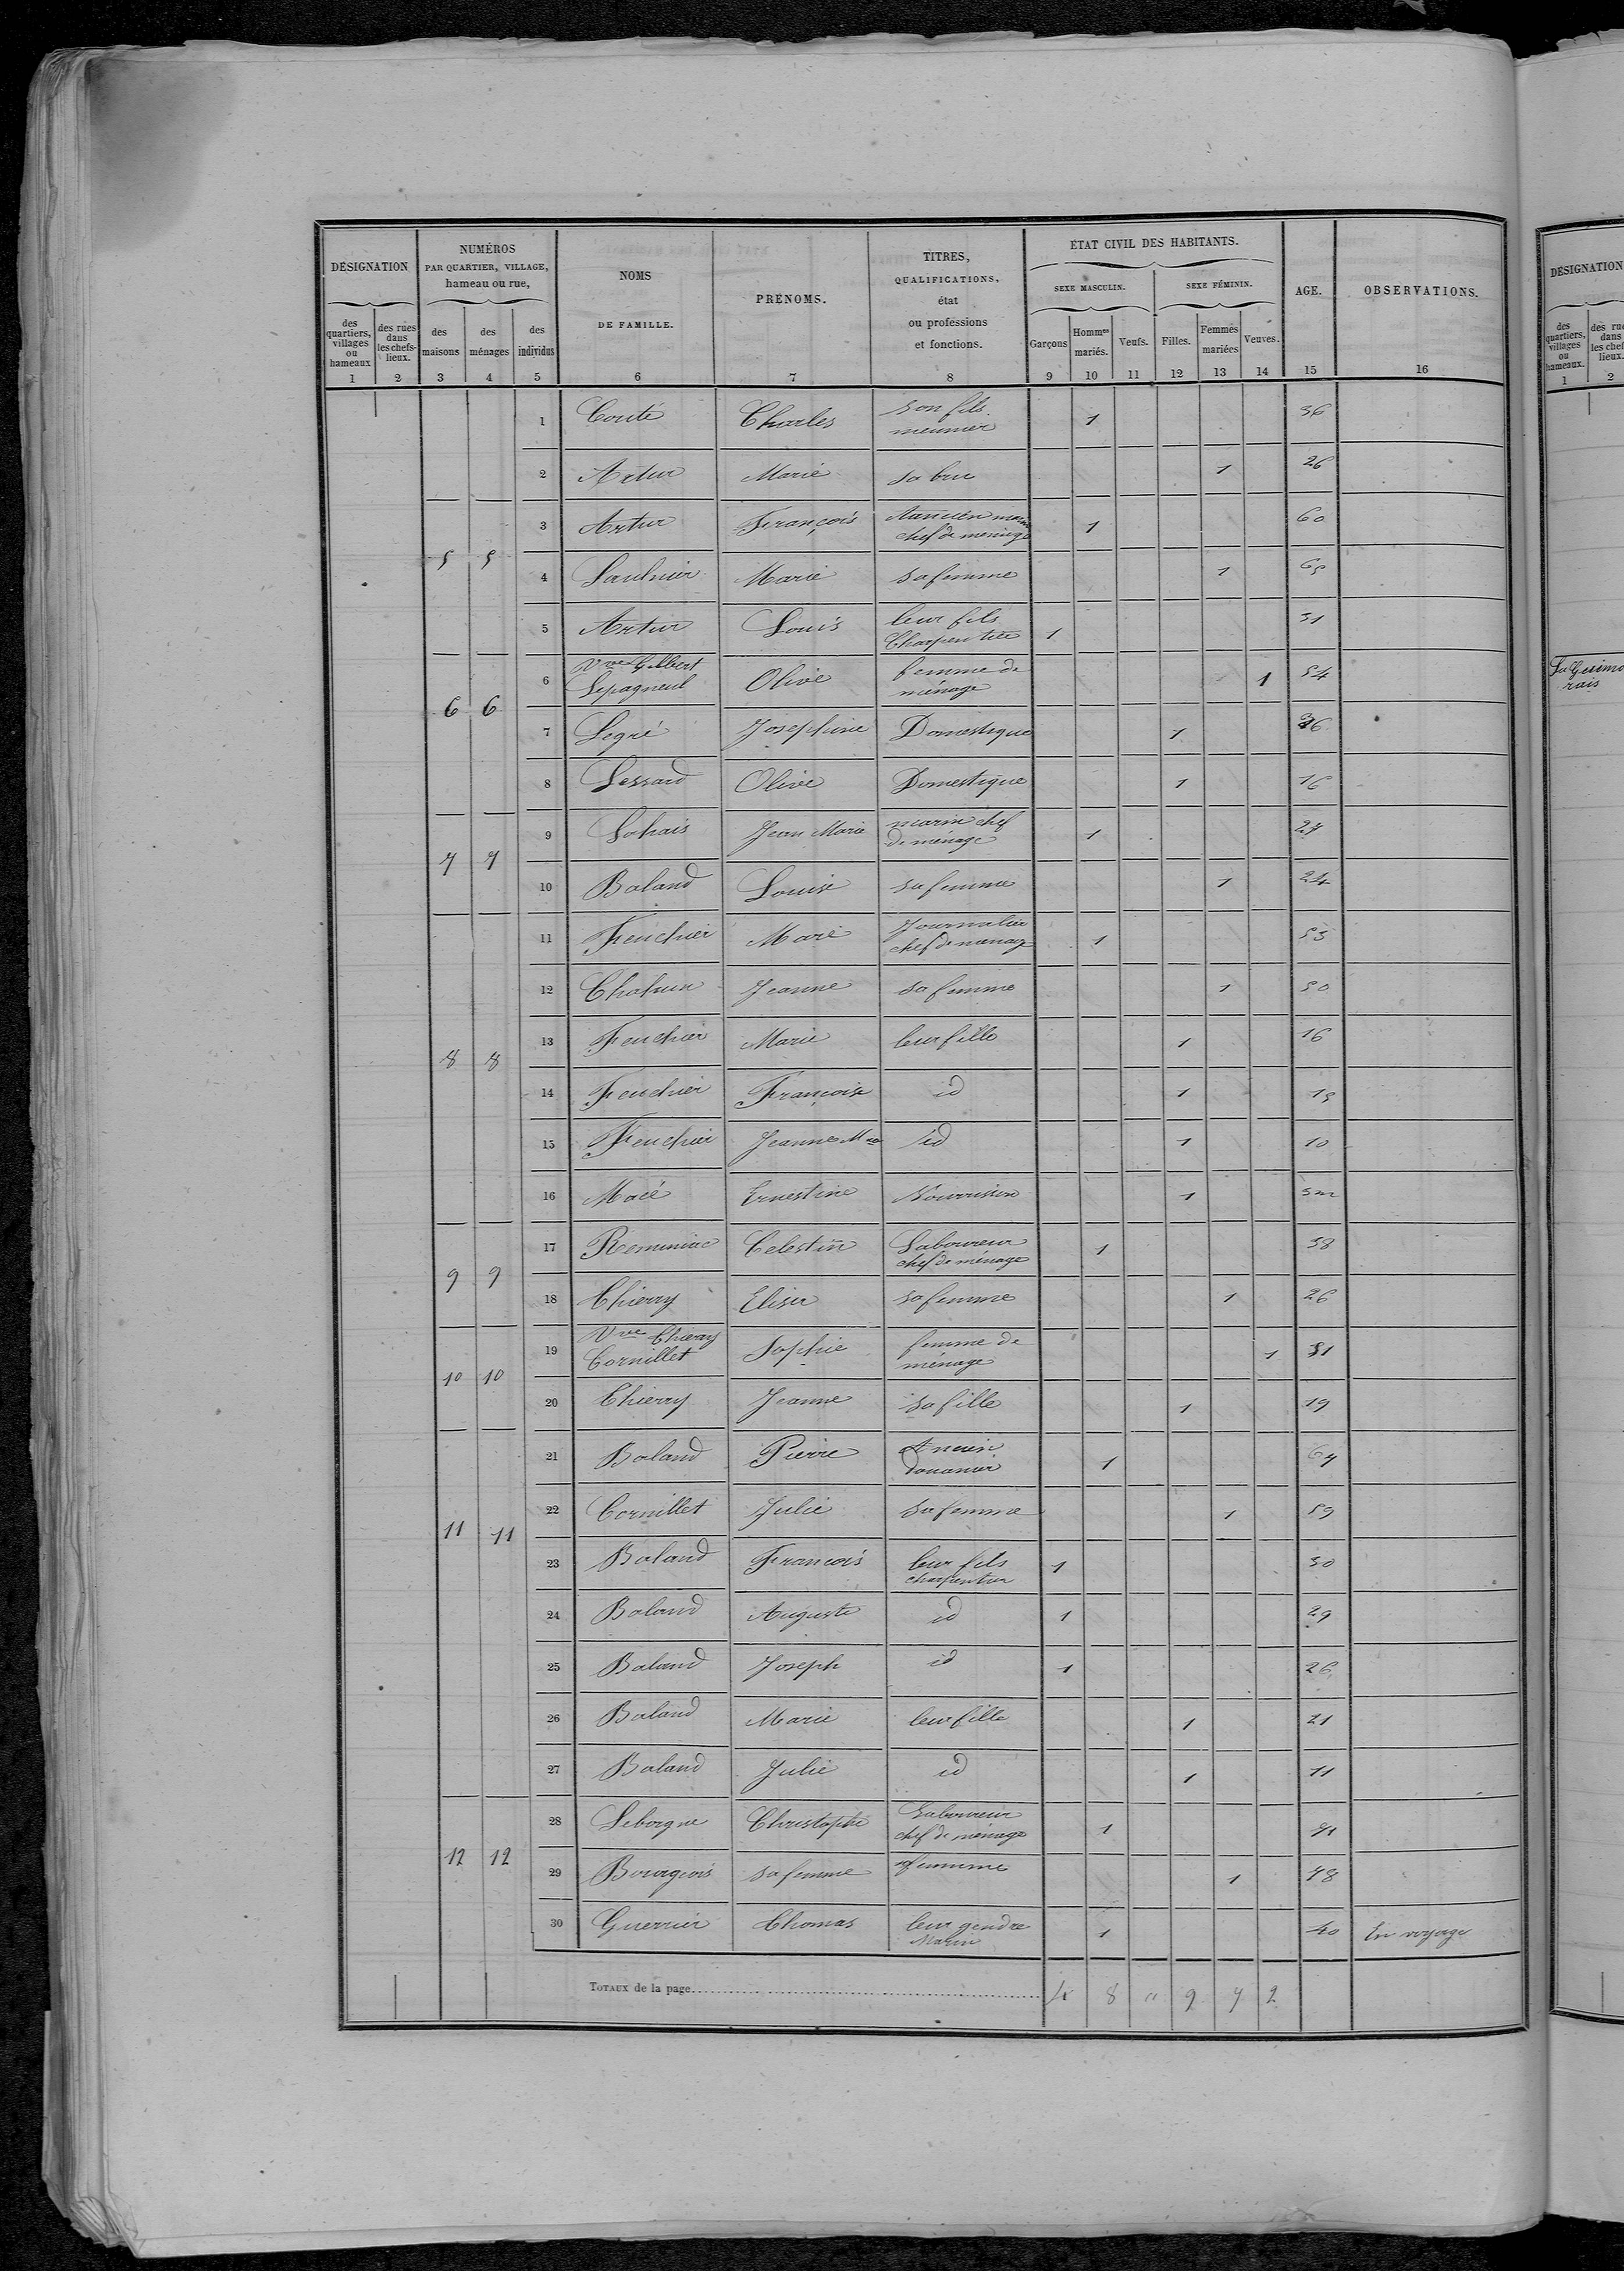 DÉSIGNATION
NUMÉROS
PAR QUARTIER, VILLAGE,
hameau ou rue,
NOMS
DE FAMILLE.
PRÉNOMS.
TITRES,
QUALIFICATIONS,
état
ou professions
et fonctions.
ÉTAT CIVIL DES HABITANTS.
SEXE MASCULIN.
SEXE FÉMININ.
AGE.
OBSERVATIONS.
des quartiers, villages ou hameaux
des rues dans les chefs-lieux.
des maisons
des ménages
des individus
Garçons
Hommes mariés.
Veufs.
Filles.
Femmes mariées
Veuves.
1 2 3 4 5 6 7 8 9 10 11 12 13 14 15 16
1 Couté Charles son fils meunier 1 36
2 Artur Marie sa bru 1 26
3 Artur François Ancien marin chef de ménage 1 60
5 5 4 Saulnier Marie sa femme 1 65
5 Artur Louis leur fils Charpentier 1 31
6 Vve Gilbert Lepagneul Olive femme de ménage 1 54
6 6 7 Legré Josephine Domestique 1 36
8 Lessard Olive Domestique 1 16
9 Lohais Jean Marie marin chef de ménage 1 27
7 7 10 Baland Louise sa femme 1 24
11 Feuchier Marie Journalier chef de ménage 1 53
12 Chapun Jeanne sa femme 1 50
13 Feuchier Marie leur fille 1 16
8 8 14 Feuchier Françoise id 1 13
15 Feuchier Jeanne Mie id 1 10
16 Macé Ernestine Nourrisson 1 3m
17 Reminiac Celestin Laboureur chef de ménage 1 38
9 9 18 Thierry Elisa sa femme 1 26
19 Vve Thierry Cornillet Sophie femme de ménage 1 51
10 10 20 Thierry Jeanne sa fille 1 19
21 Baland Pierre Ancien douanier 1 67
22 Cornillet Julie sa femme 1 59
11 11 23 Baland François leur fils charpentier 1 30
24 Baland Auguste id 1 29
25 Baland Joseph id 1 26
26 Baland Marie leur fille 1 21
27 Baland Julie id 1 11
28 Leborgne Christophe Laboureur chef de ménage 1 71
12 12 29 Bourgeois sa femme sa femme 1 78
30 Guerrier Thomas leur gendre Marin 1 40 En voyage
TOTAUX de la page 4 8 " 9 7 2
DÉSIGNATION
des quartiers, villages ou hameaux.
1 2
La Guimorais